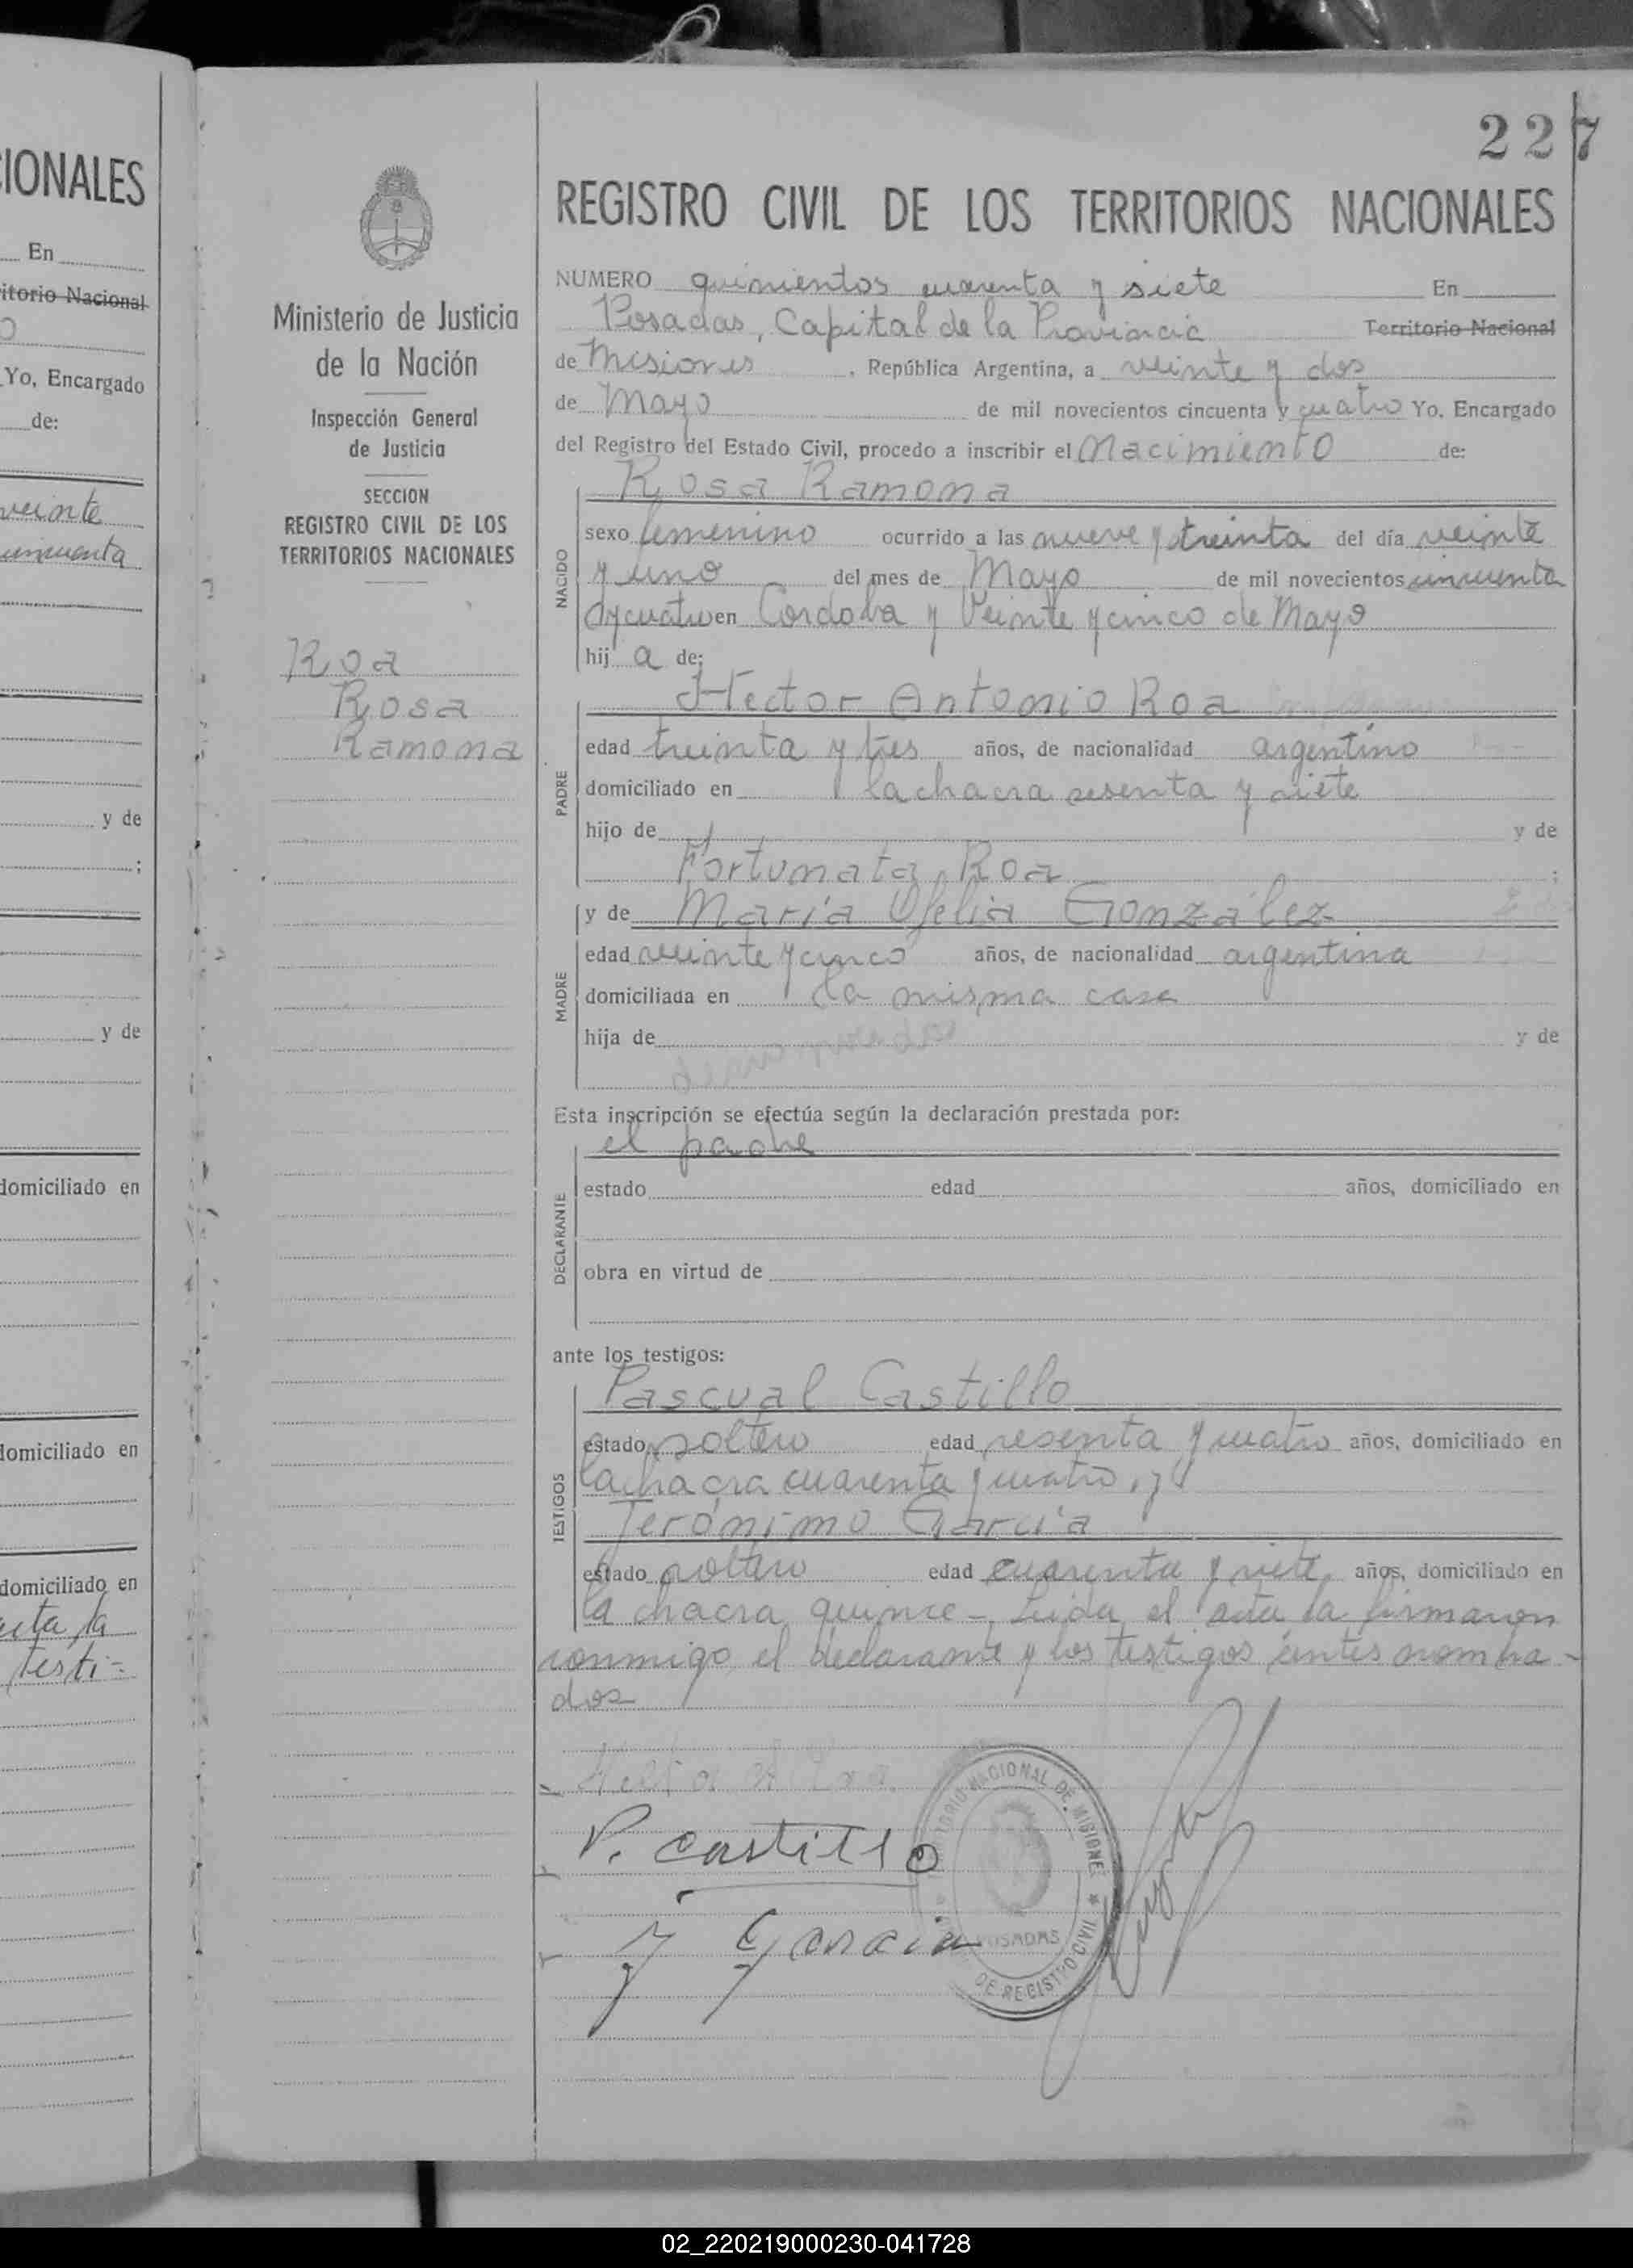 IONALES
En
itorio Nacional
Yo, Encargado
de:
veinte
cincuenta
y de
y de
domiciliado en
domiciliado en
domiciliado en
acta la
testi-
Ministerio de Justicia
de la Nación
Inspección General
de Justicia
SECCION
REGISTRO CIVIL DE LOS
TERRITORIOS NACIONALES
Roa
Rosa
Ramona
227
REGISTRO CIVIL DE LOS TERRITORIOS NACIONALES
NUMERO quinientos cuarenta y siete En
Posadas, Capital de la Provincia Territorio Nacional
de Misiones, República Argentina, a veinte y dos
de Mayo de mil novecientos cincuenta y cuatro Yo, Encargado
del Registro del Estado Civil, procedo a inscribir el Nacimiento de:
Rosa Ramona
NACIDO
sexo femenino ocurrido a las nueve y treinta del día veinte
y uno del mes de Mayo de mil novecientos cincuenta
y cuatro en Cordoba y Veinte y cinco de Mayo
hij a de:
Hector Antonio Roa
PADRE
edad treinta y tres años, de nacionalidad argentino
domiciliado en la chacra sesenta y siete
hijo de y de
Fortunata Roa ;
y de Maria Ofelia González
MADRE
edad veinte y cinco años, de nacionalidad argentina
domiciliada en la misma casa
hija de y de
Esta inscripción se efectúa según la declaración prestada por:
el padre
DECLARANTE
estado edad años, domiciliado en
obra en virtud de
ante los testigos:
Pascual Castillo
TESTIGOS
estado soltero edad sesenta y cuatro años, domiciliado en
la chacra cuarenta y cuatro, y
Jerónimo García
estado soltero edad cuarenta y siete años, domiciliado en
la chacra quince - Leida el acta la firmaron
conmigo el declarante y los testigos antes nombra-
dos
P. castillo
J Garcia
TERRITORIO NACIONAL DE MISIONES
POSADAS
DE REGISTRO CIVIL
02_220219000230-041728